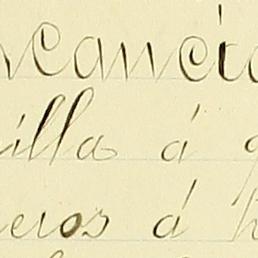 ncancia
illa á g
eros á h